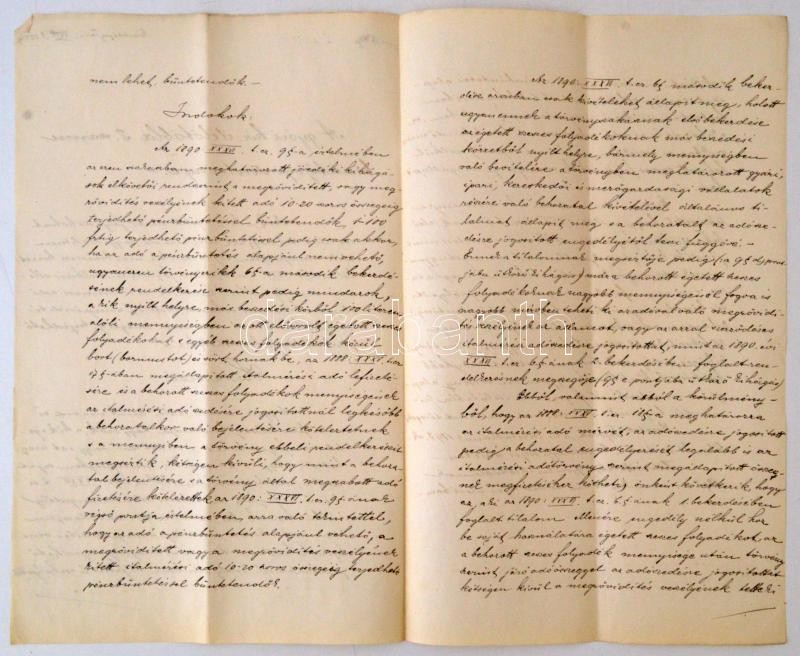 nem lehet, büntetendők. –
Indokok:
Az 1890: XXXVI. t.cz. 9 §-a értelmében
azon szakaszban meghatározott jövedéki kihágá-
sok elkövetői rendszerint a megrövidített, vagy meg
rövidítés veszélyének kitett adó 10-20 szoros összegéig
terjedhető pénzbüntetéssel büntetendők, 1-100
frtig terjedhető pénzbüntetéssel pedig csak akkor,
ha az adó a pénzbüntetés alapjául nem vehető,
ugyanezen törvényczikk 6 §-a második bekezdé-
sének rendelkezése szerint pedig mindazok,
a kik nyílt helyre, más beszedési körből 100 literen
alóli mennyiségben égetett szeszes
folyadékokat s egyéb szeszes folyadékok közül
bort (bormustot) és sört hoznak be, az 1888: XXXV. t.cz.
5 §-ában megállapított italmérési adó lefizeté-
sére és a behozott szeszes folyadékok mennyiségének
az italmérési adó szedésére jogosítottnál legkésőbb
a behozatalkor való bejelentésére köteleztetnek
s a mennyiben a törvény ebbeli rendelkezéseit
megsértik, kétségen kívüli, hogy mint a behoza-
tal bejelentésére s a törvény által megszabott adó
fizetésére kötelezettek az 1890: XXXVI. t.cz. 9 §-ának
végső pontja értelmében, arra való tekintettel,
hogy az adó a pénzbüntetés alapjául vehető, a
megrövidített vagy a megrövidítés veszélyének
kitett italmérési adó 10-20 szoros összegéig terjedhető
pénzbüntetéssel büntetendők.
Az 1890: XXXVI. t.cz. 6 § második bekez-
dése azonban csak kivételeket állapit meg, holott
ugyanennek a törvényszakasznak első bekezdése
az égetett szeszes folyadékoknak más beszedési
körzetből nyílt helyre, bármely mennyiségben
való bevitelére a törvényben meghatározott gyári,
ipari, kereskedői és mezőgazdasági vállalatok
részére való behozatal kivételével általános ti-
lalmat állapit meg s a behozatalt az adósze-
désére jogosított engedélyétől teszi függővé. –
Ennek a tilalomnak megsértője pedig (a 9 § d) pont
jába ütköző kihágás) mára behozott égetett szeszes
folyadékoknak nagyobb mennyiségénél fogva is
nagyobb adóval való megrövidí-
tés veszélyének az államot, vagy az azzal szerződéses
italmérési adószedésre jogosítottat, mint az 1890. évi
XXXVI. t.cz. 6 §-ának 2. bekezdésében foglalt ren-
delkezésnek megszegője (9 § e pontjába ütköző kihágás)
Ebből valamint abból a körülmény-
ből, hogy az 1888: XXXV. t.cz. 18 §-a meghatározza
az italmérési adó mérvét, az adószedésre jogosított
pedig a behozatal engedélyezését legalább is az
italmérési adótörvény szerint megállapított összeg-
nek megfizetéséhez kötheti, önként következik, hogy
az, a ki az 1890: XXXVI. t.cz. 6 §-ának 1. bekezdésében
foglalt tilalom ellenére engedély nélkül hoz
be saját használatára égetett szeszes folyadékot, az
a behozott szeszes folyadék mennyisége után törvény
szerint járó adóösszeget az adószedésre jogosítottat
kétségen kívül a megrövidítés veszélyének tette ki
darabanth